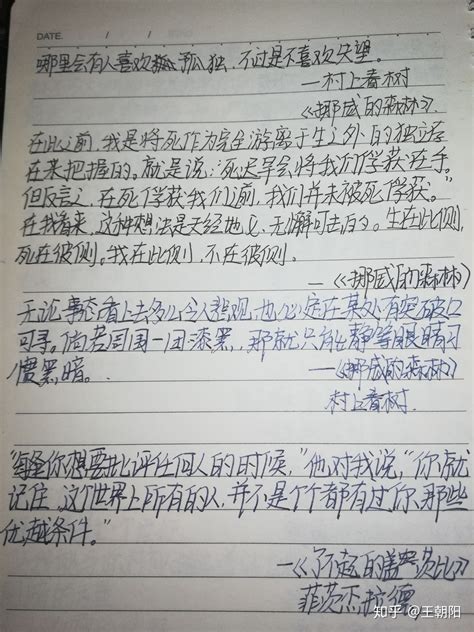 DATE. / /
哪里会有人喜欢孤独，不过是不喜欢失望。
—村上春树
《挪威的森林》.
在此之前，我是将死作为完全游离于生之外的独立存
在来把握的。就是说：“死迟早会将我们俘获在手。
但反言之，在死俘获我们前，我们并未被死俘获。”
在我看来，这种想法是天经地义、无懈可击的。生在此侧，
死在彼侧。我在此侧，不在彼侧。
—《挪威的森林》
无论事态看上去多么令人悲观，也必定在某处有突破口
可寻。倘若周围一团漆黑，那就只能静等眼睛习
惯黑暗。
—《挪威的森林》
村上春树.
“每逢你想要批评任何人的时候，”他对我说，“你就
记住，这个世界上所有的人，并不是个个都有过你那些
优越条件。”
—《了不起的盖茨比》
菲茨杰拉德
知乎 @王朝阳